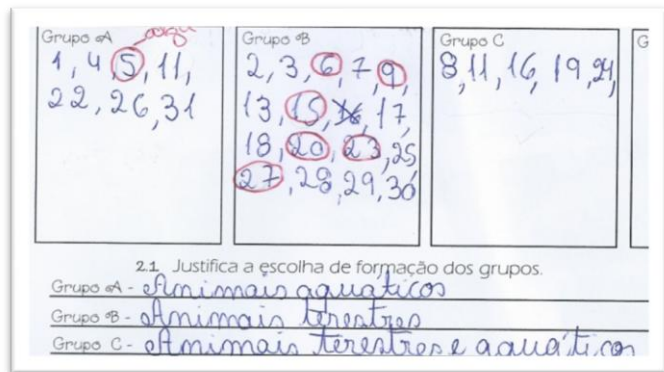 Grupo A
1, 4, 5, 11,
22, 26, 31
Grupo B
2, 3, 6, 7, 9,
13, 15, 16, 17,
18, 20, 23, 25
27, 28, 29, 30
Grupo C
8, 11, 16, 19, 24,
G
2.1 Justifica a escolha de formação dos grupos.
Grupo A - Animais aquáticos
Grupo B - Animais terestres
Grupo C - Animais terestres e aquáticos